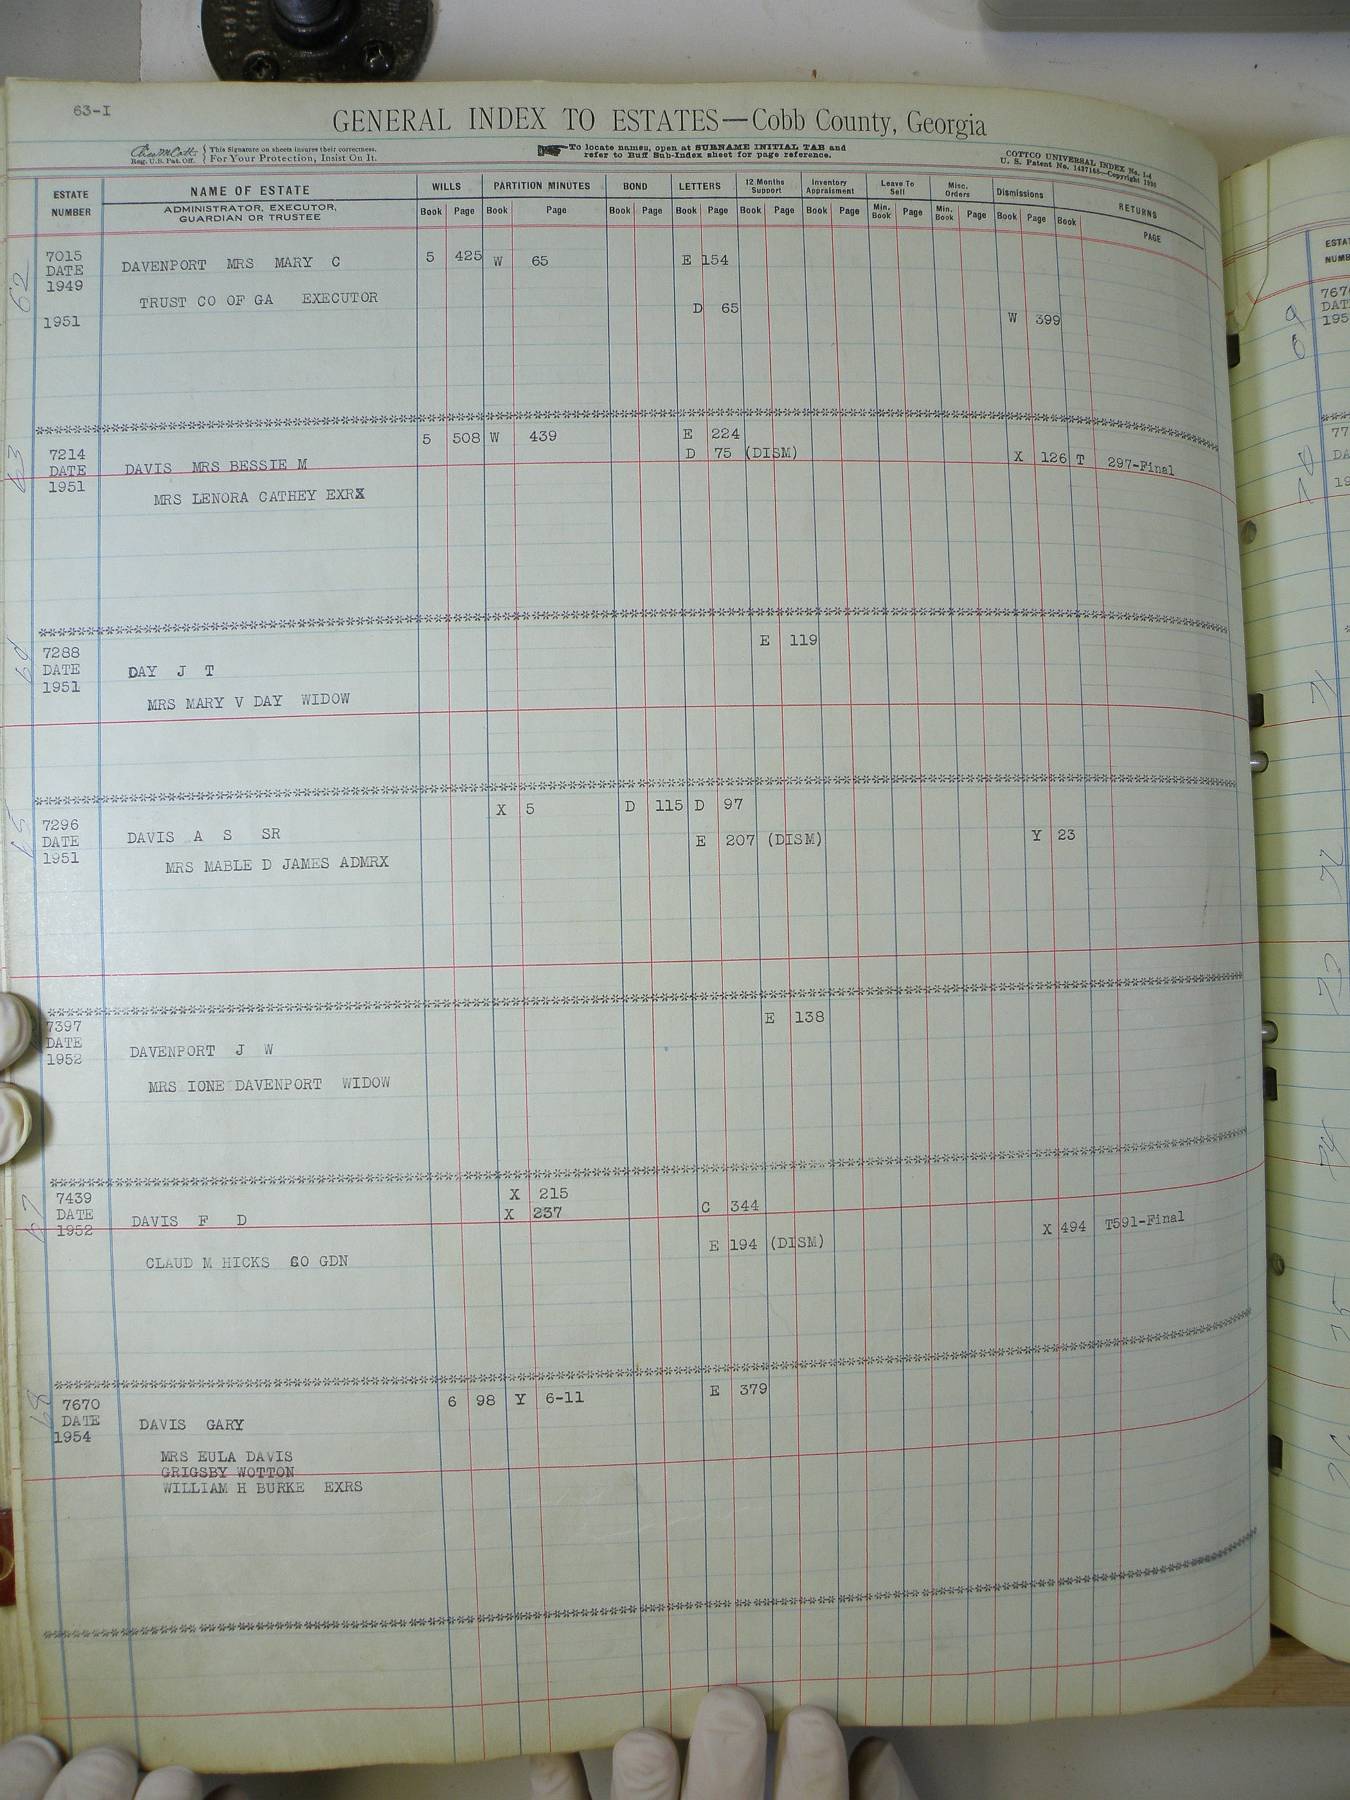 63-I
GENERAL INDEX TO ESTATES—Cobb County, Georgia
Reg. U.S. Pat. Off. { This Signature on sheets insures their correctness.
For Your Protection, Insist On It.
To locate names, open at SURNAME INITIAL TAB and
refer to Buff Sub-Index sheet for page reference.
COTTCO UNIVERSAL INDEX No. 1-4
U. S. Patent No. 1437165—Copyright 1930
ESTATE NUMBER NAME OF ESTATE WILLS PARTITION MINUTES BOND LETTERS 12 Months Support Inventory Appraisment Leave To Sell Misc. Orders Dismissions RETURNS
ADMINISTRATOR, EXECUTOR, GUARDIAN OR TRUSTEE Book Page Book Page Book Page Book Page Book Page Book Page Min. Book Page Min. Book Page Book Page Book PAGE
62
7015 5 425 W 65 E 154
DATE DAVENPORT MRS MARY C
1949
TRUST CO OF GA EXECUTOR D 65
1951 W 399
63
5 508 W 439 E 224
7214 D 75 (DISM) X 126 T 297-Final
DATE DAVIS MRS BESSIE M
1951 MRS LENORA CATHEY EXRX
64
7288 E 119
DATE DAY J T
1951 MRS MARY V DAY WIDOW
65
X 5 D 115 D 97
7296
DATE DAVIS A S SR E 207 (DISM) Y 23
1951 MRS MABLE D JAMES ADMRX
7397 E 138
DATE DAVENPORT J W
1952
MRS IONE DAVENPORT WIDOW
67
7439 X 215
DATE DAVIS F D X 237 C 344
1952 X 494 T591-Final
E 194 (DISM)
CLAUD M HICKS CO GDN
68
7670 6 98 Y 6-11 E 379
DATE DAVIS GARY
1954
MRS EULA DAVIS
GRIGSBY WOTTON
WILLIAM H BURKE EXRS
69
70
71
72
73
74
75
76